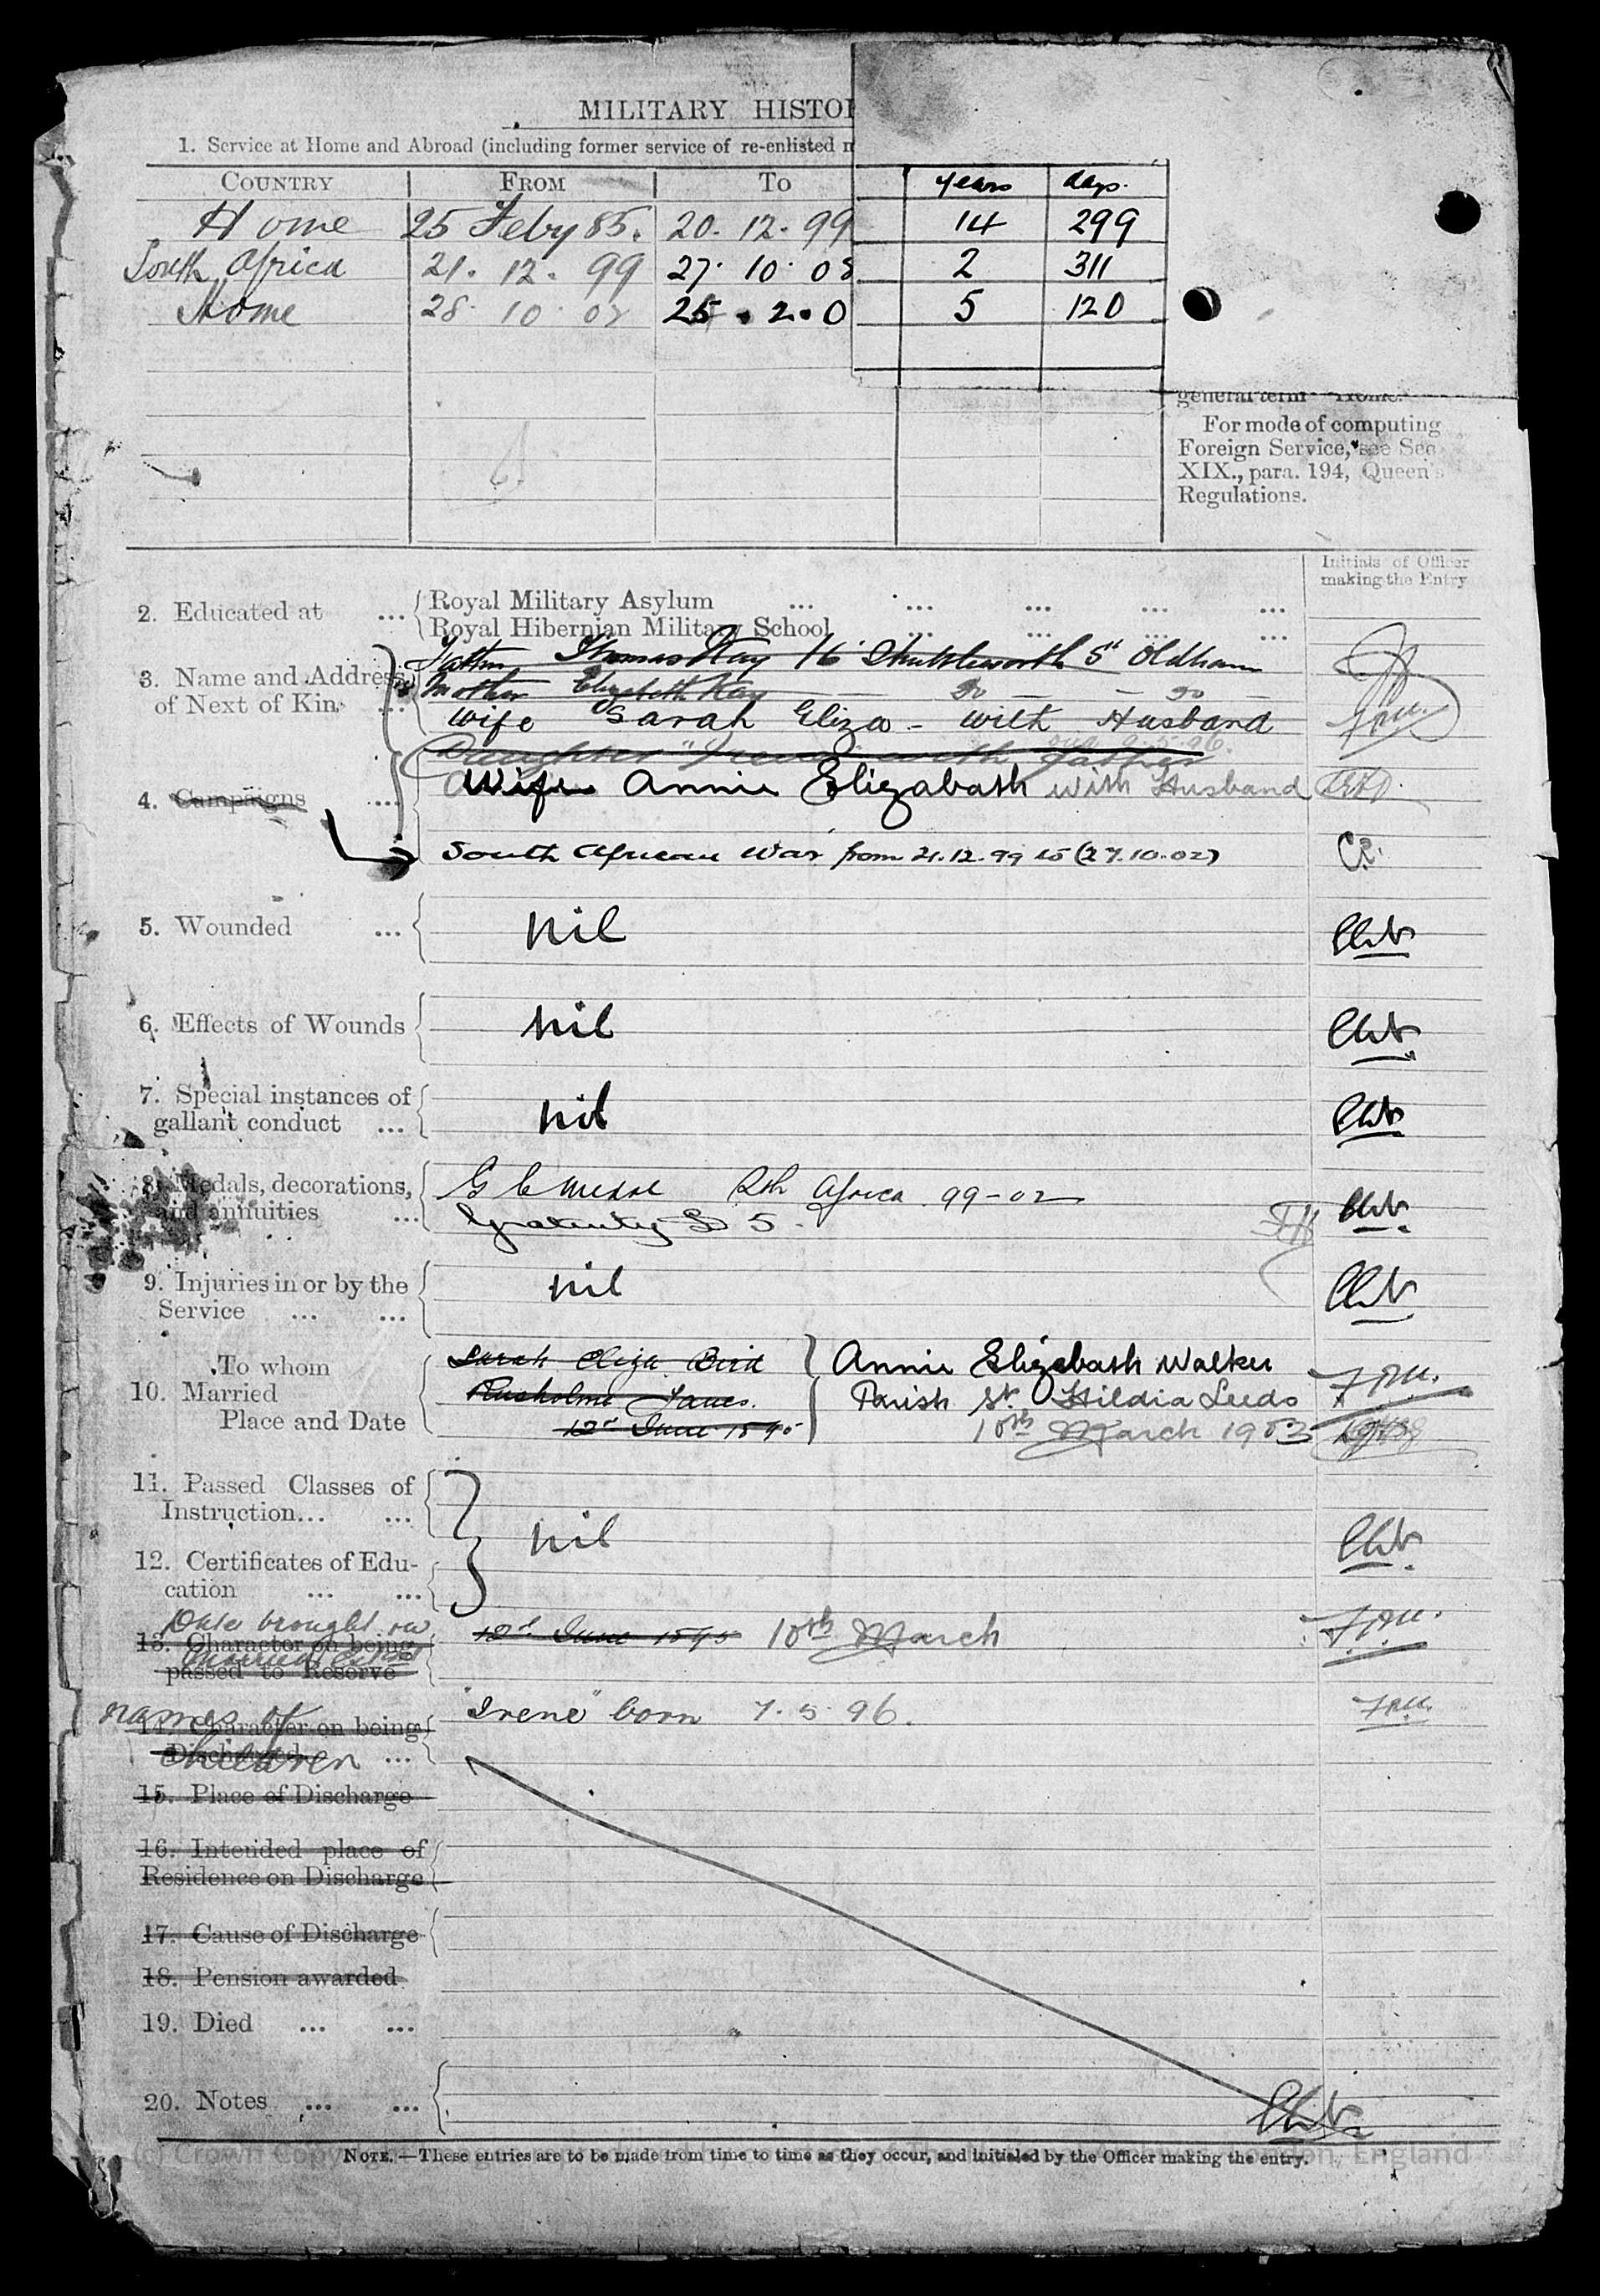 MILITARY HISTOR
1. Service at Home and Abroad (including former service of re-enlisted m
COUNTRY FROM TO years days.
Home 25 Feby 85. 20. 12. 99 14 299
South Africa 21. 12. 99 27. 10. 02 2 311
Home 28. 10. 02 25. 2. 0 5 120
general term "Home."
For mode of computing
Foreign Service, see Sec.
XIX., para. 194, Queen's
Regulations.
Initials of Officer
making the Entry
2. Educated at ... Royal Military Asylum ... ... ... ... ...
Royal Hibernian Military School ... ... ... ...
3. Name and Address
of Next of Kin. ...
Father Thomas Kay 16 Shuttleworth St Oldham
Mother Elizabeth Kay — do — — do —
Wife Sarah Eliza - with Husband
Daughter "Irene" with father
Wife Annie Elizabath with Husband
4. Campaigns ....
South African War from 21.12.99 to (27.10.02)
5. Wounded ... nil
6. Effects of Wounds nil
7. Special instances of
gallant conduct ... nil
8. Medals, decorations,
and annuities ...
G C Medal Sth Africa 99-02
Gratuity £ 5.
9. Injuries in or by the
Service ... ... nil
10. To whom
Married
Place and Date
Sarah Eliza Bird
Rusholme Lancs.
12th June 1895
Annie Elizabath Walker
Parish St. Hildia Leeds
10th March 1903
11. Passed Classes of
Instruction... ...
nil
12. Certificates of Edu-
cation ... ...
Date brought on
married
13. Character on being
passed to Reserve
12th June 1895 10th March
names of
children
14. Character on being
Discharged ...
"Irene" born 7. 5. 96.
15. Place of Discharge
16. Intended place of
Residence on Discharge
17. Cause of Discharge
18. Pension awarded
19. Died ... ...
20. Notes ... ...
NOTE.—These entries are to be made from time to time as they occur, and initialed by the Officer making the entry.